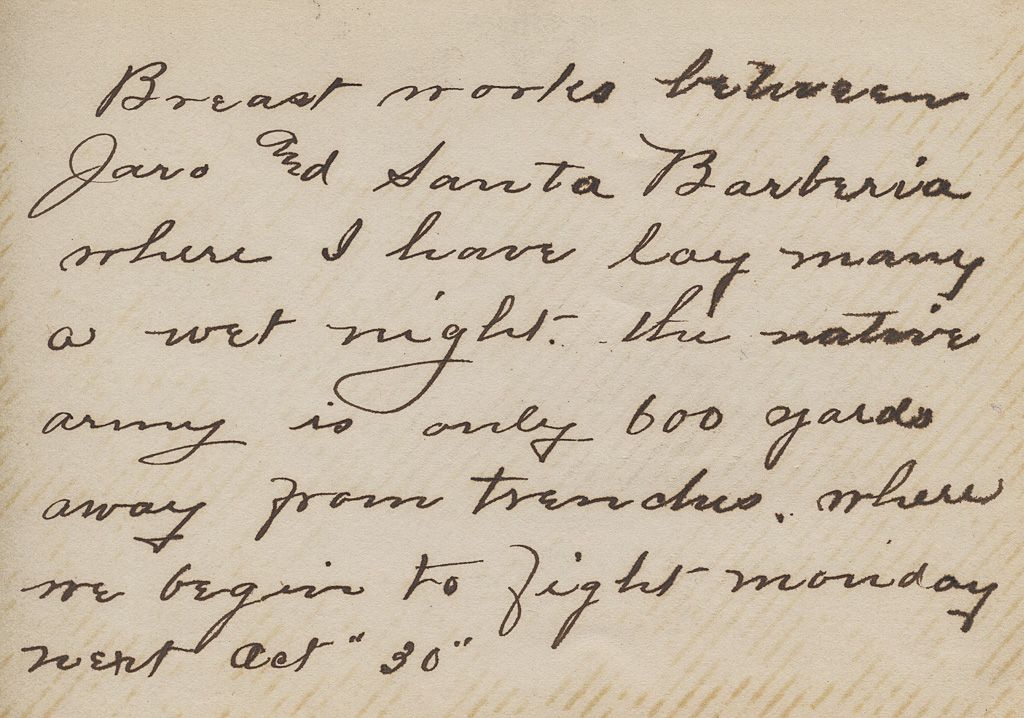 Breast works between
Jaro and Santa Barberia
where I have lay many
a wet night. the native
army is only 600 yards
away from trenches. where
we begin to fight monday
next Oct "30"